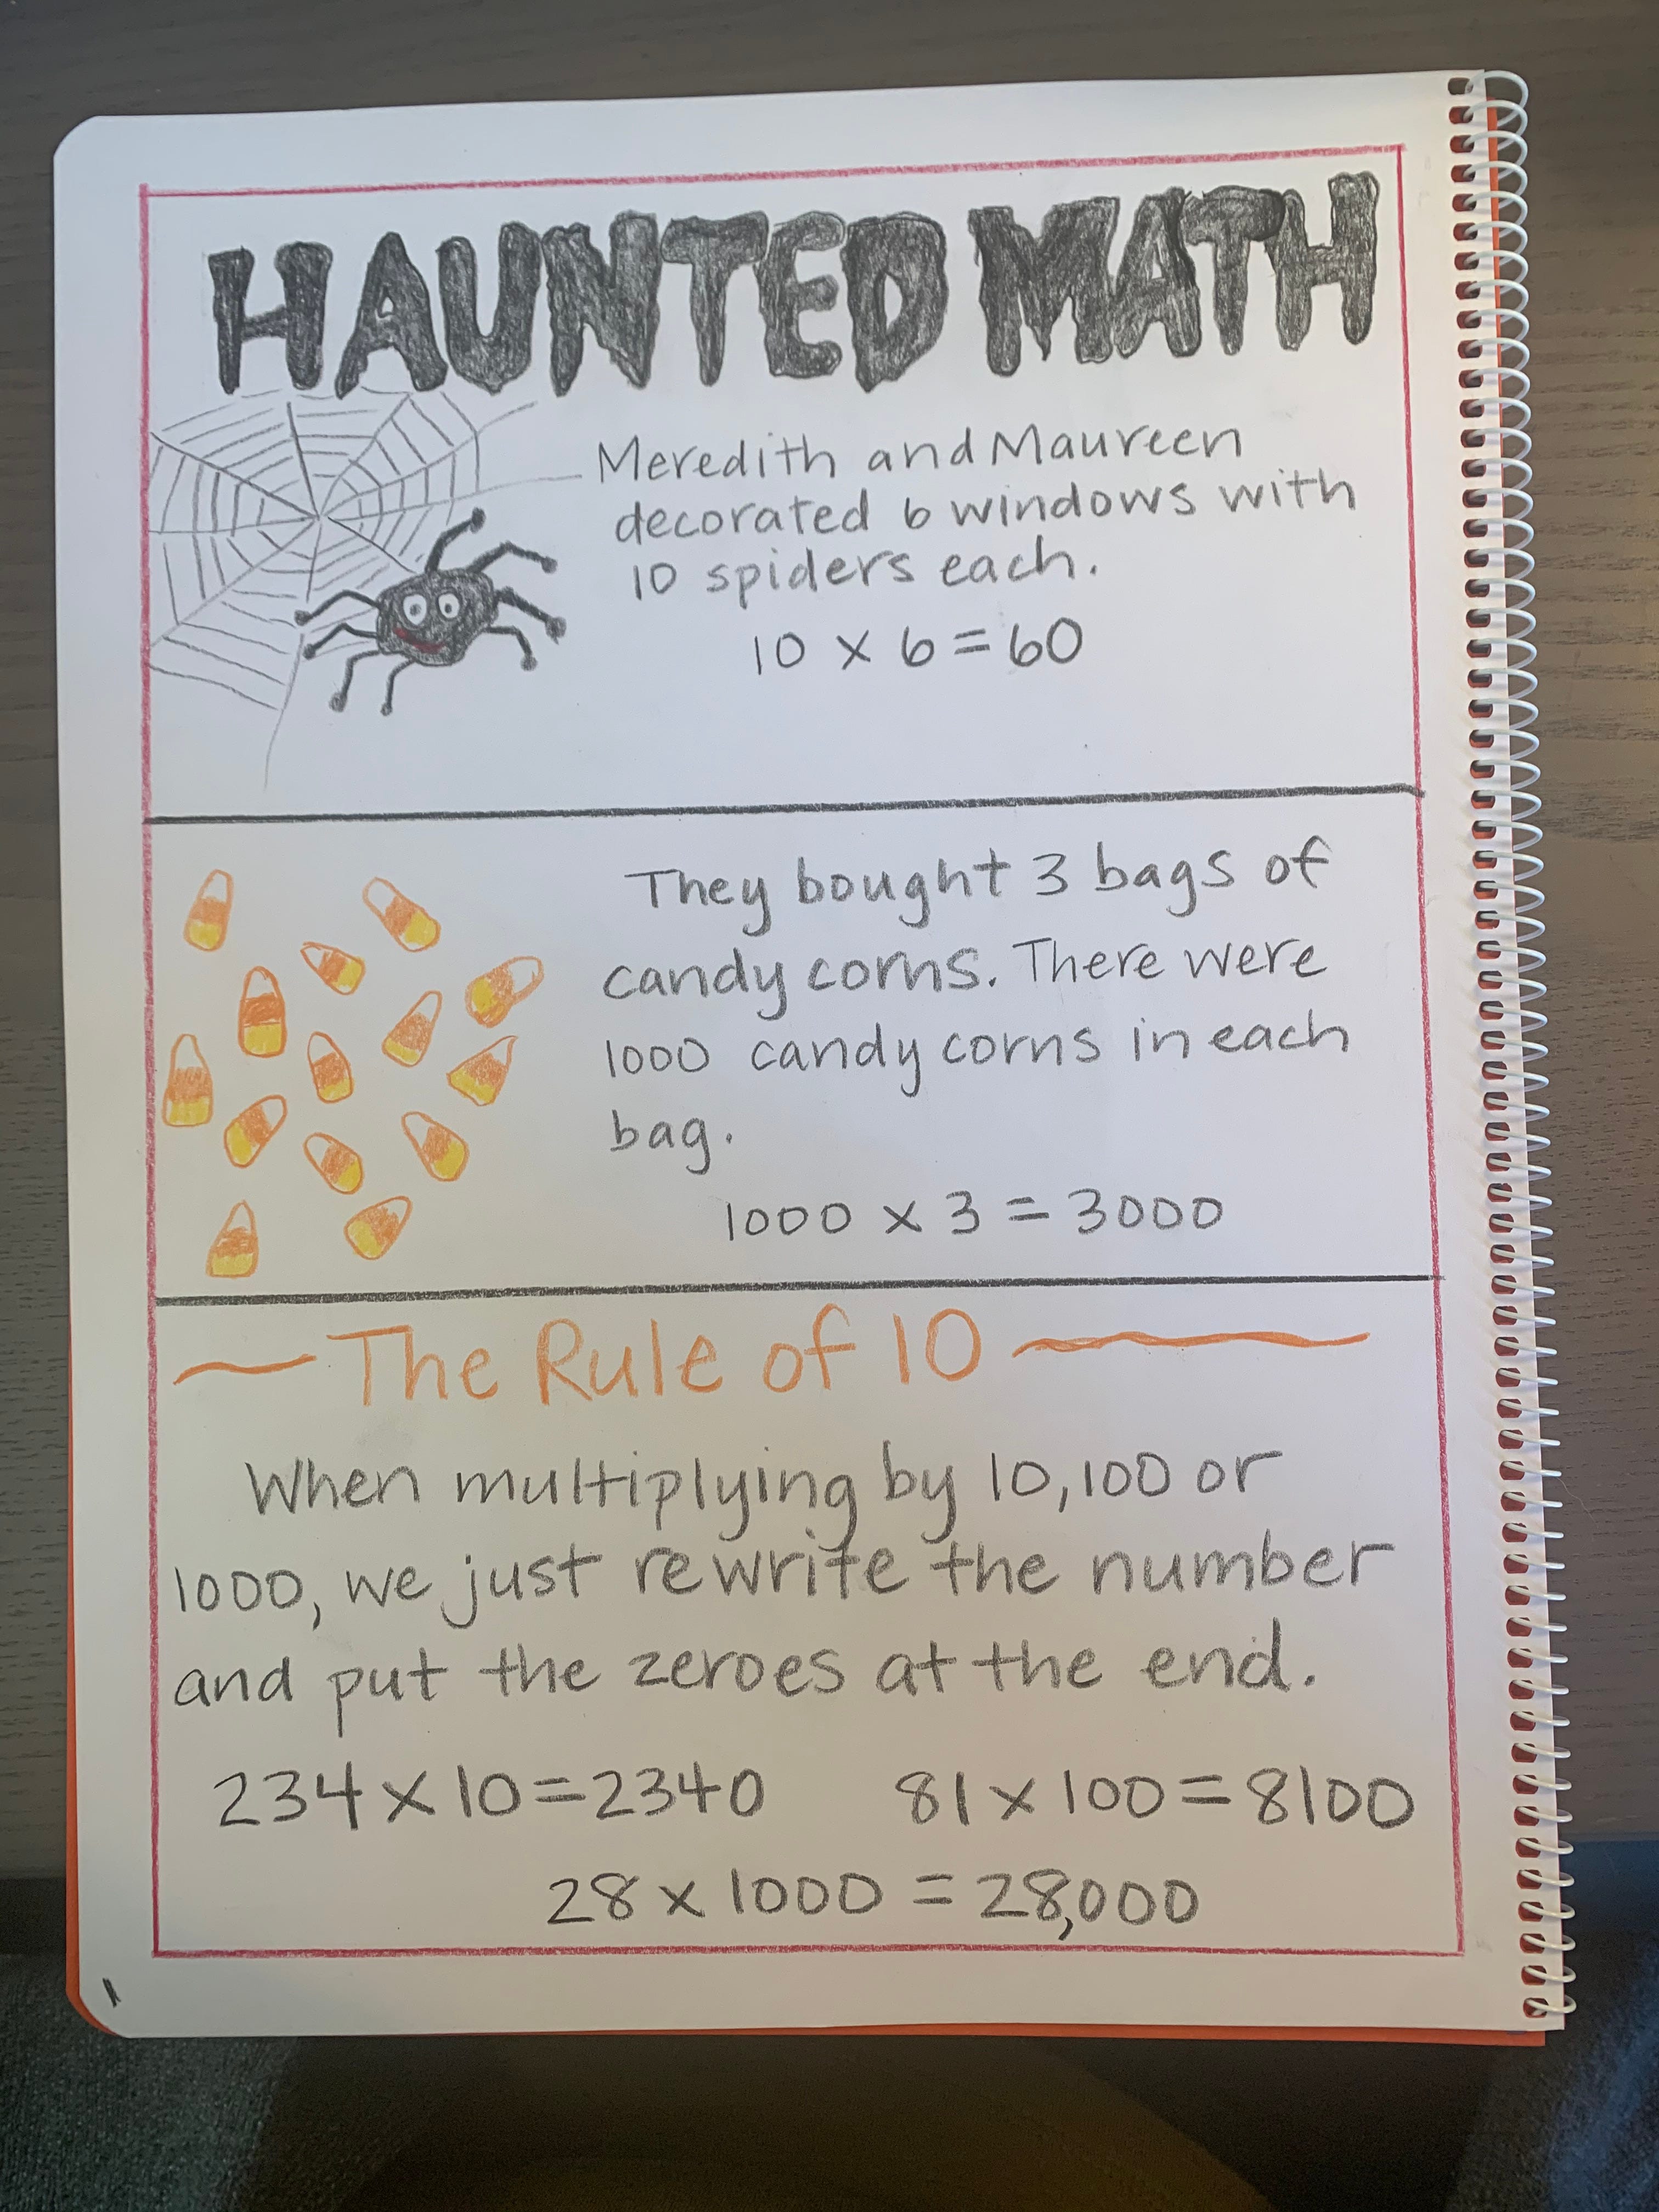 HAUNTED MATH
Meredith and Maureen
decorated 6 windows with
10 spiders each.
10 x 6 = 60
They bought 3 bags of
candy corns. There were
1000 candy corns in each
bag.
1000 x 3 = 3000
The Rule of 10
When multiplying by 10, 100 or
1000, we just rewrite the number
and put the zeroes at the end.
234 x 10 = 2340 81 x 100 = 8100
28 x 1000 = 28,000